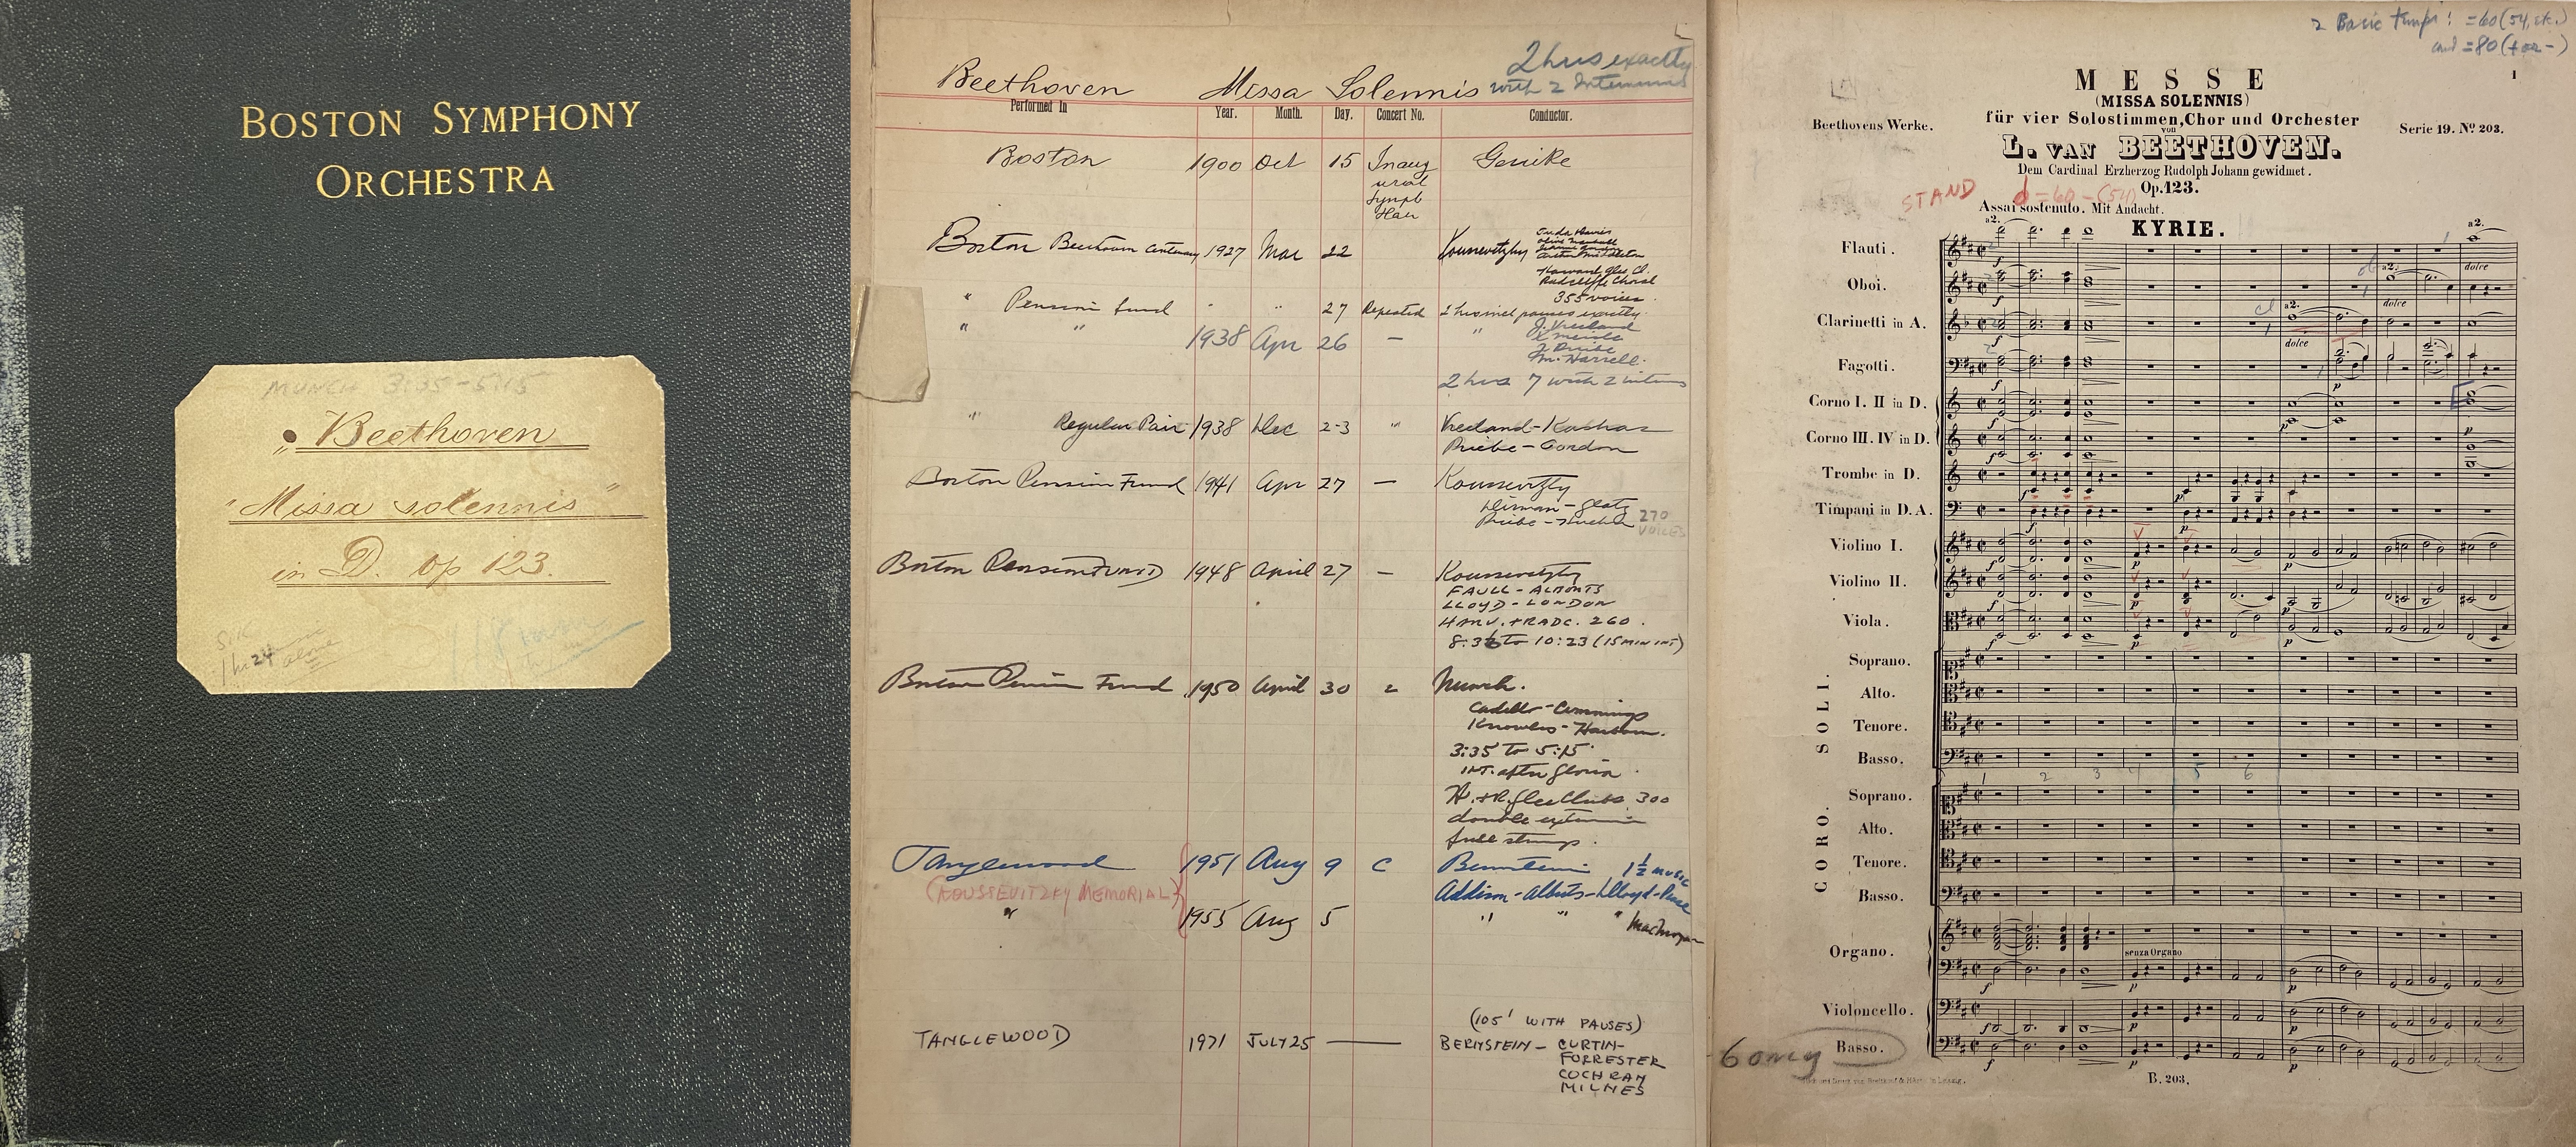 BOSTON SYMPHONY
ORCHESTRA
MUNCH 3:35-5:15
Beethoven
"Missa solennis"
in D. op 123.
S.K.
1 hr 24 alone
2 hrs exactly
with 2
Beethoven Missa Solennis
Performed In Year. Month. Day. Concert No. Conductor.
Boston 1900 Oct 15 Inaug Gericke
ural
Symph
Hall
Boston Beethoven Centenary 1927 Mar 22 Koussevitzky
Harvard Glee Cl.
Radcliffe Choral
355 voices
" Pension fund " " 27 Repeated 2 hrs incl pauses exactly
" " 1938 Apr 26 — " J. Vreeland
J. Priebe
M. Harrell.
2 hrs 7 with 2 interms
" Regular Pair 1938 Dec 2-3 " Vreeland - Kaskas
Priebe - Gordon
Boston Pension Fund 1941 Apr 27 — Koussevitzky
Priebe -
270
VOICES
Boston Pension FUND 1948 April 27 — Koussevitzky
FAULL - ALBERTS
LLOYD - LONDON
HARV. + RADC. 260.
8:36 to 10:23 (15 MIN INT)
Boston Pension Fund 1950 April 30 2 Munch.
Cummings
Knowles -
3:35 to 5:15
INT. after Gloria.
H. + R. Glee Clubs 300
double
full strings.
Tanglewood 1951 Aug 9 C Bernstein 1 1/2 music
(KOUSSEVITZKY MEMORIAL) Addison - Alberts - Lloyd - Pease
" 1955 Aug 5 " " "
(105' WITH PAUSES)
TANGLEWOOD 1971 JULY 25 — BERNSTEIN - CURTIN-
FORRESTER
COCHRAN
MILNES
2 Basic tempi: =60 (54, etc.)
and =80 (+ or -)
1
MESSE
(MISSA SOLENNIS)
für vier Solostimmen, Chor und Orchester
Beethovens Werke. von Serie 19. No 203.
L. VAN BEETHOVEN.
Dem Cardinal Erzherzog Rudolph Johann gewidmet.
Op. 123.
STAND =60-(54)
Assai sostenuto. Mit Andacht.
KYRIE.
a2. a2.
Flauti.
dolce
ob a2.
Oboi.
dolce
cl a2.
Clarinetti in A.
dolce
Fagotti.
Corno I. II in D.
Corno III. IV in D.
Trombe in D.
Timpani in D. A.
Violino I.
Violino II.
Viola.
SOLI.
Soprano.
Alto.
Tenore.
Basso.
1 2 3 4 5 6
CORO.
Soprano.
Alto.
Tenore.
Basso.
Organo.
senza Organo
Violoncello.
6 only Basso.
B. 203.